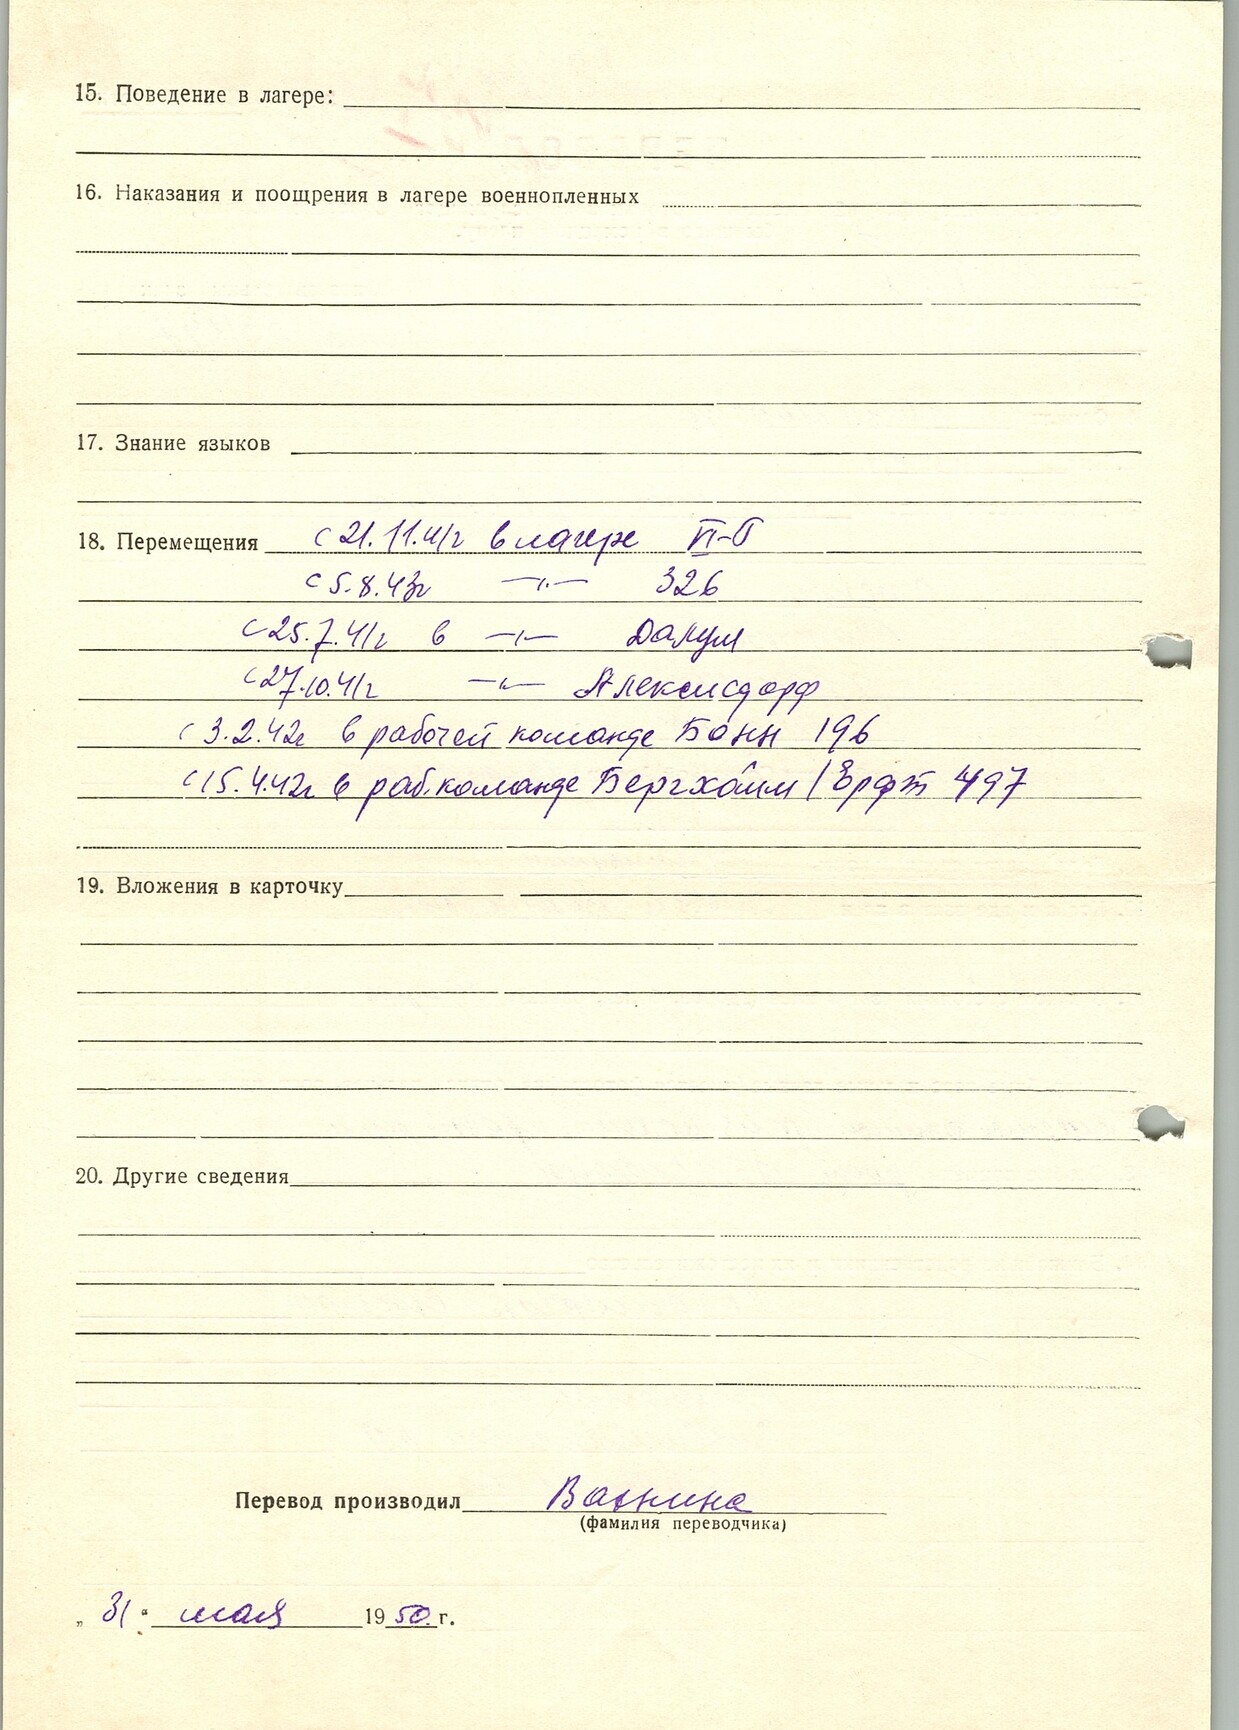 15. Поведение в лагере:
16. Наказания и поощрения в лагере военнопленных
17. Знание языков
18. Перемещения с 21.11.41г в лагере
с 5.8.43г —"— 326
с 25.7.41г в —"— Далум
с 27.10.41г —"— Алексисдорф
с 3.2.42г в рабочей команде Бонн 196
с 15.4.42г в раб. команде Бергхайм / Ерфт 497
19. Вложения в карточку
20. Другие сведения
Перевод производил
(фамилия переводчика)
„ 31 “ мая 1950 г.